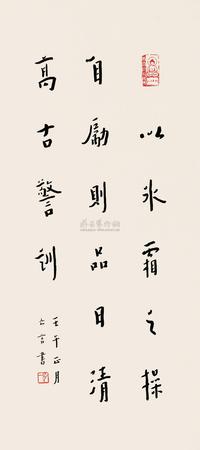 以氷霜之操
自勵則品日清
高 古警訓
壬午正月
亡言書